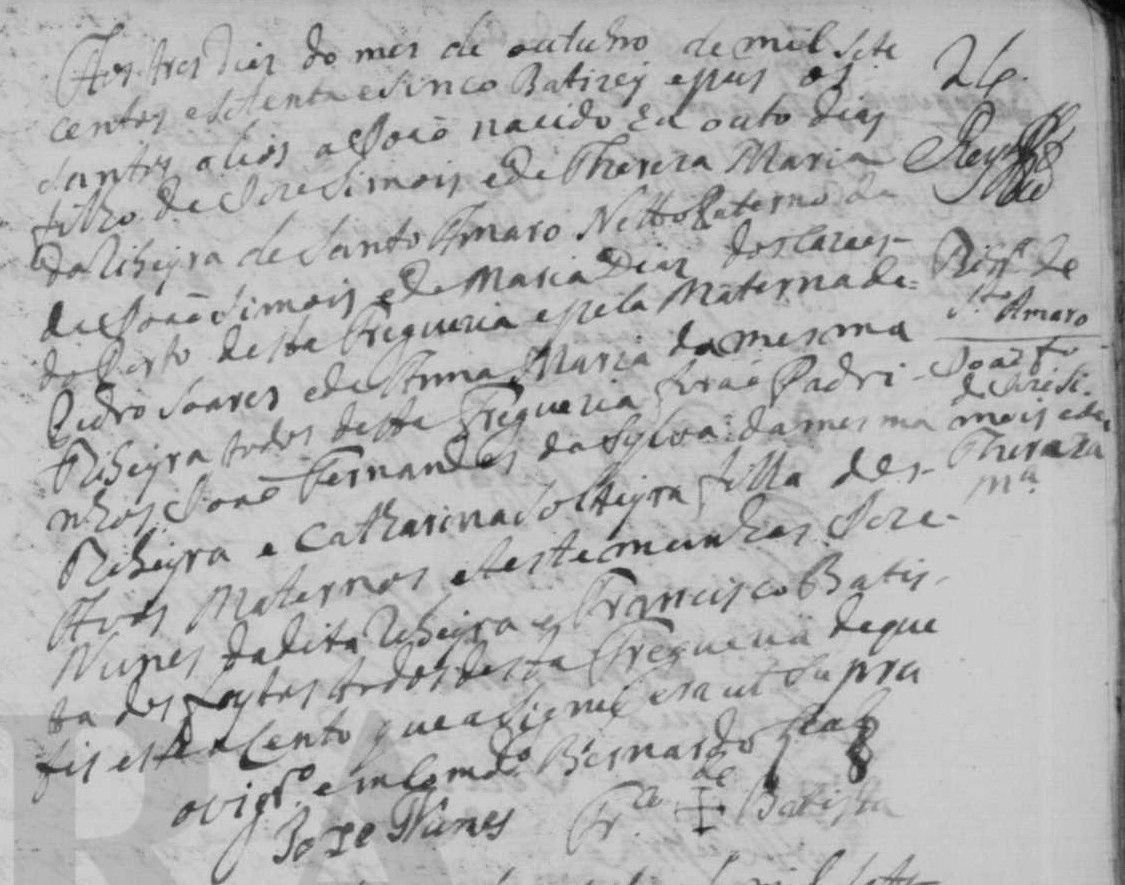 Aos tres dias do mes de outubro de mil sete
centos e setenta e sinco Batizey e pus os
santos olios a Joaõ nacido ha outo dias
filho de Joze Simois e de Thereza Maria
da Ribeyra de Santo Amaro Netto Paterno de
de Joaõ Simois e de Maria Dias dos Cazaes
do Porto desta Freguezia e pela Materna de
Pedro Soares e de Anna Maria da mesma
Ribeyra todos desta Freguezia foraõ Padri-
nhos Joaõ Fernandes da Sylva da mesma
Ribeyra e Catharina Solteyra filha dos
Avos Maternos e testemunhas Joze
Nunes da dita Ribeyra e Francisco Batis
ta dos todos desta Freguezia de que
fis este asento que asignei era ut supra
o vigr.º e mcomdo. Bernardo
Joze Nunes Fr.co de Batista
26
Ribr.ª de
S.to Amaro
Joaõ fo
de Joze Si-
mois e de
Thereza
M.ª